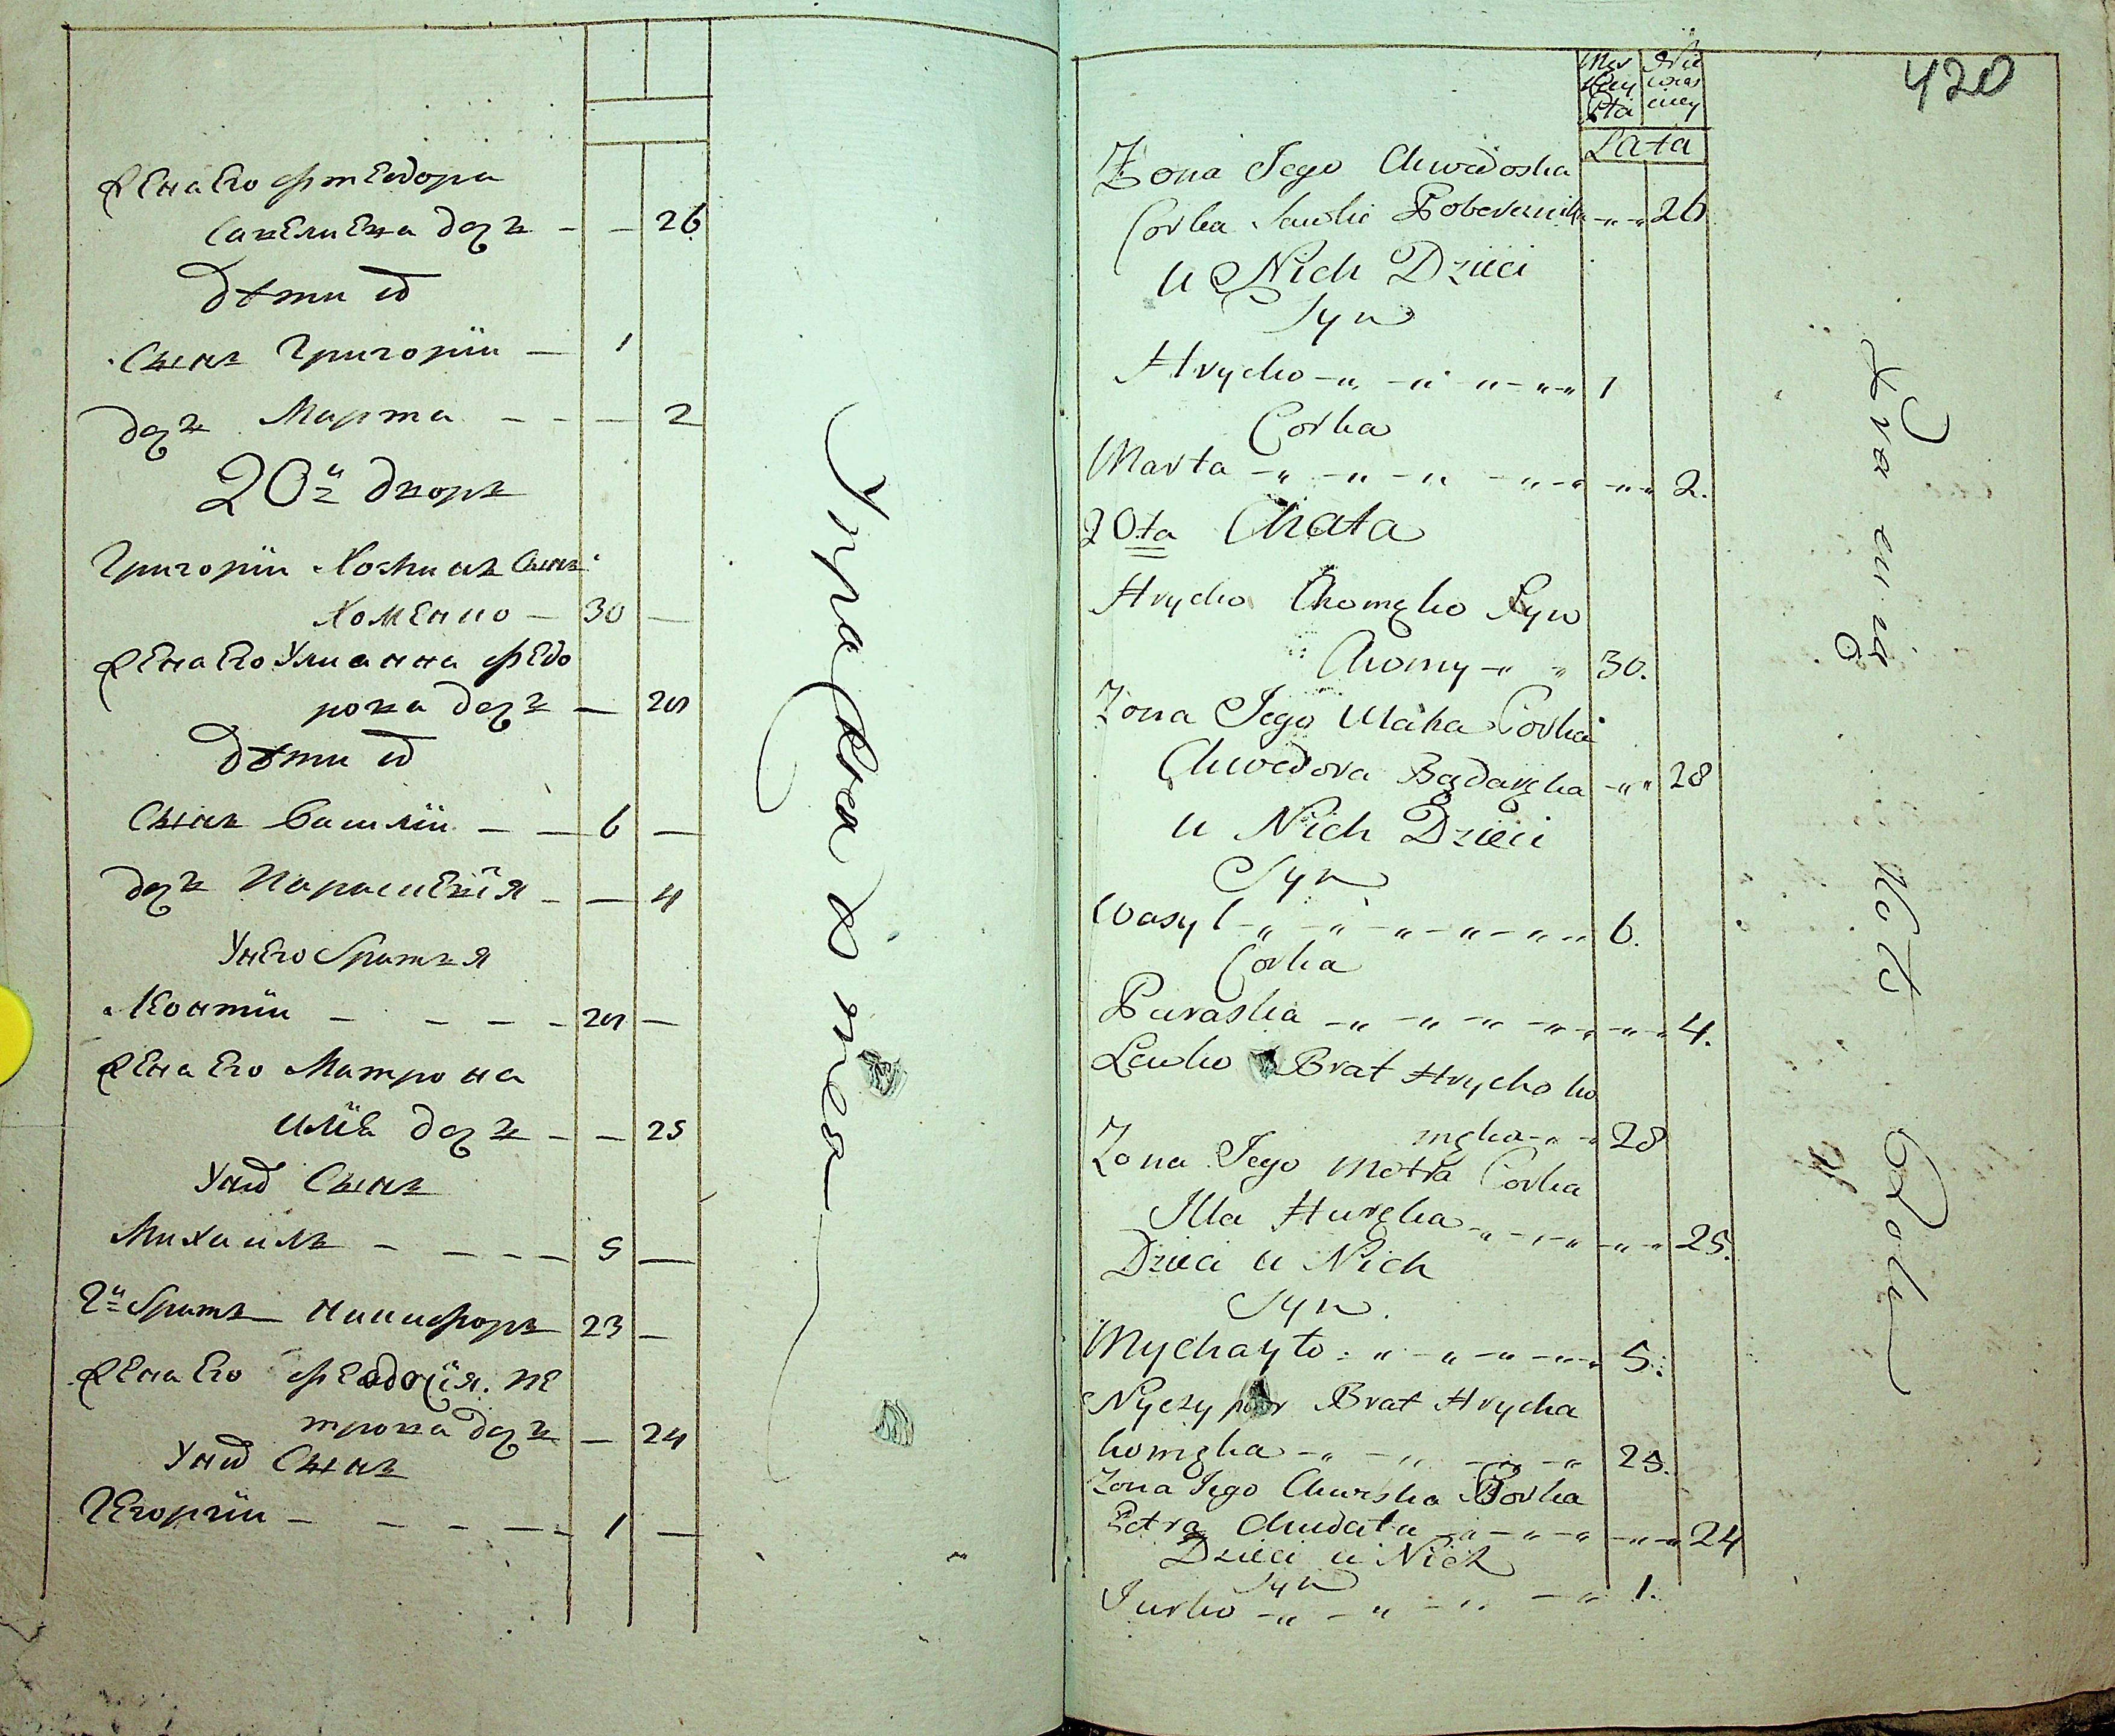 жена его Фтедора
Савелиева дочь - - 26
дѣти их
Сынъ Григорій - 1
дочь Марта - - - 2
20й дворъ
Григорій Хоминъ Сынъ
Хоменко - 30 -
жена его Улианна Федо
рова дочь - 28
дѣти их
Сынъ Василій - - 6 -
дочь Параскевія - - 4
У него братья
Леонтій - - - - - 28 -
жена его Матрона
Иліева дочь - - 25
У них Сынъ
Михаилъ - - - - - 5 -
2й братъ Никифоръ 23 -
жена его Феодосія Пе
трова дочь - 24
У них Сынъ
Георгій - - - - - 1 -
420
Męz
czy
zta
Nie
wias
ciey
Lata
Zona Jego Chwedoska
Corka Sawki 26
u Nich Dzieci
Syn
Hrycko 1
Corka
Marta 2.
20.ta Chata
Hrycko Chomęko Syn
Chomy 30.
Zona Jego Ulaka Corka
Chwedora 28
u Nich Dzieci
Syn
Wasyl 6.
Corka
Paraska 4.
Lewko Brat Hrycka ho
męka 28
Zona Jego Motra Corka
Illa 25.
Dzieci u Nich
Syn.
Mychayło 5.
Nyczypor Brat Hrycka
homęka 23.
Zona Jego Chweska Corka
Petra 24
Dzieci u Nich
Syn
Jurko 1.